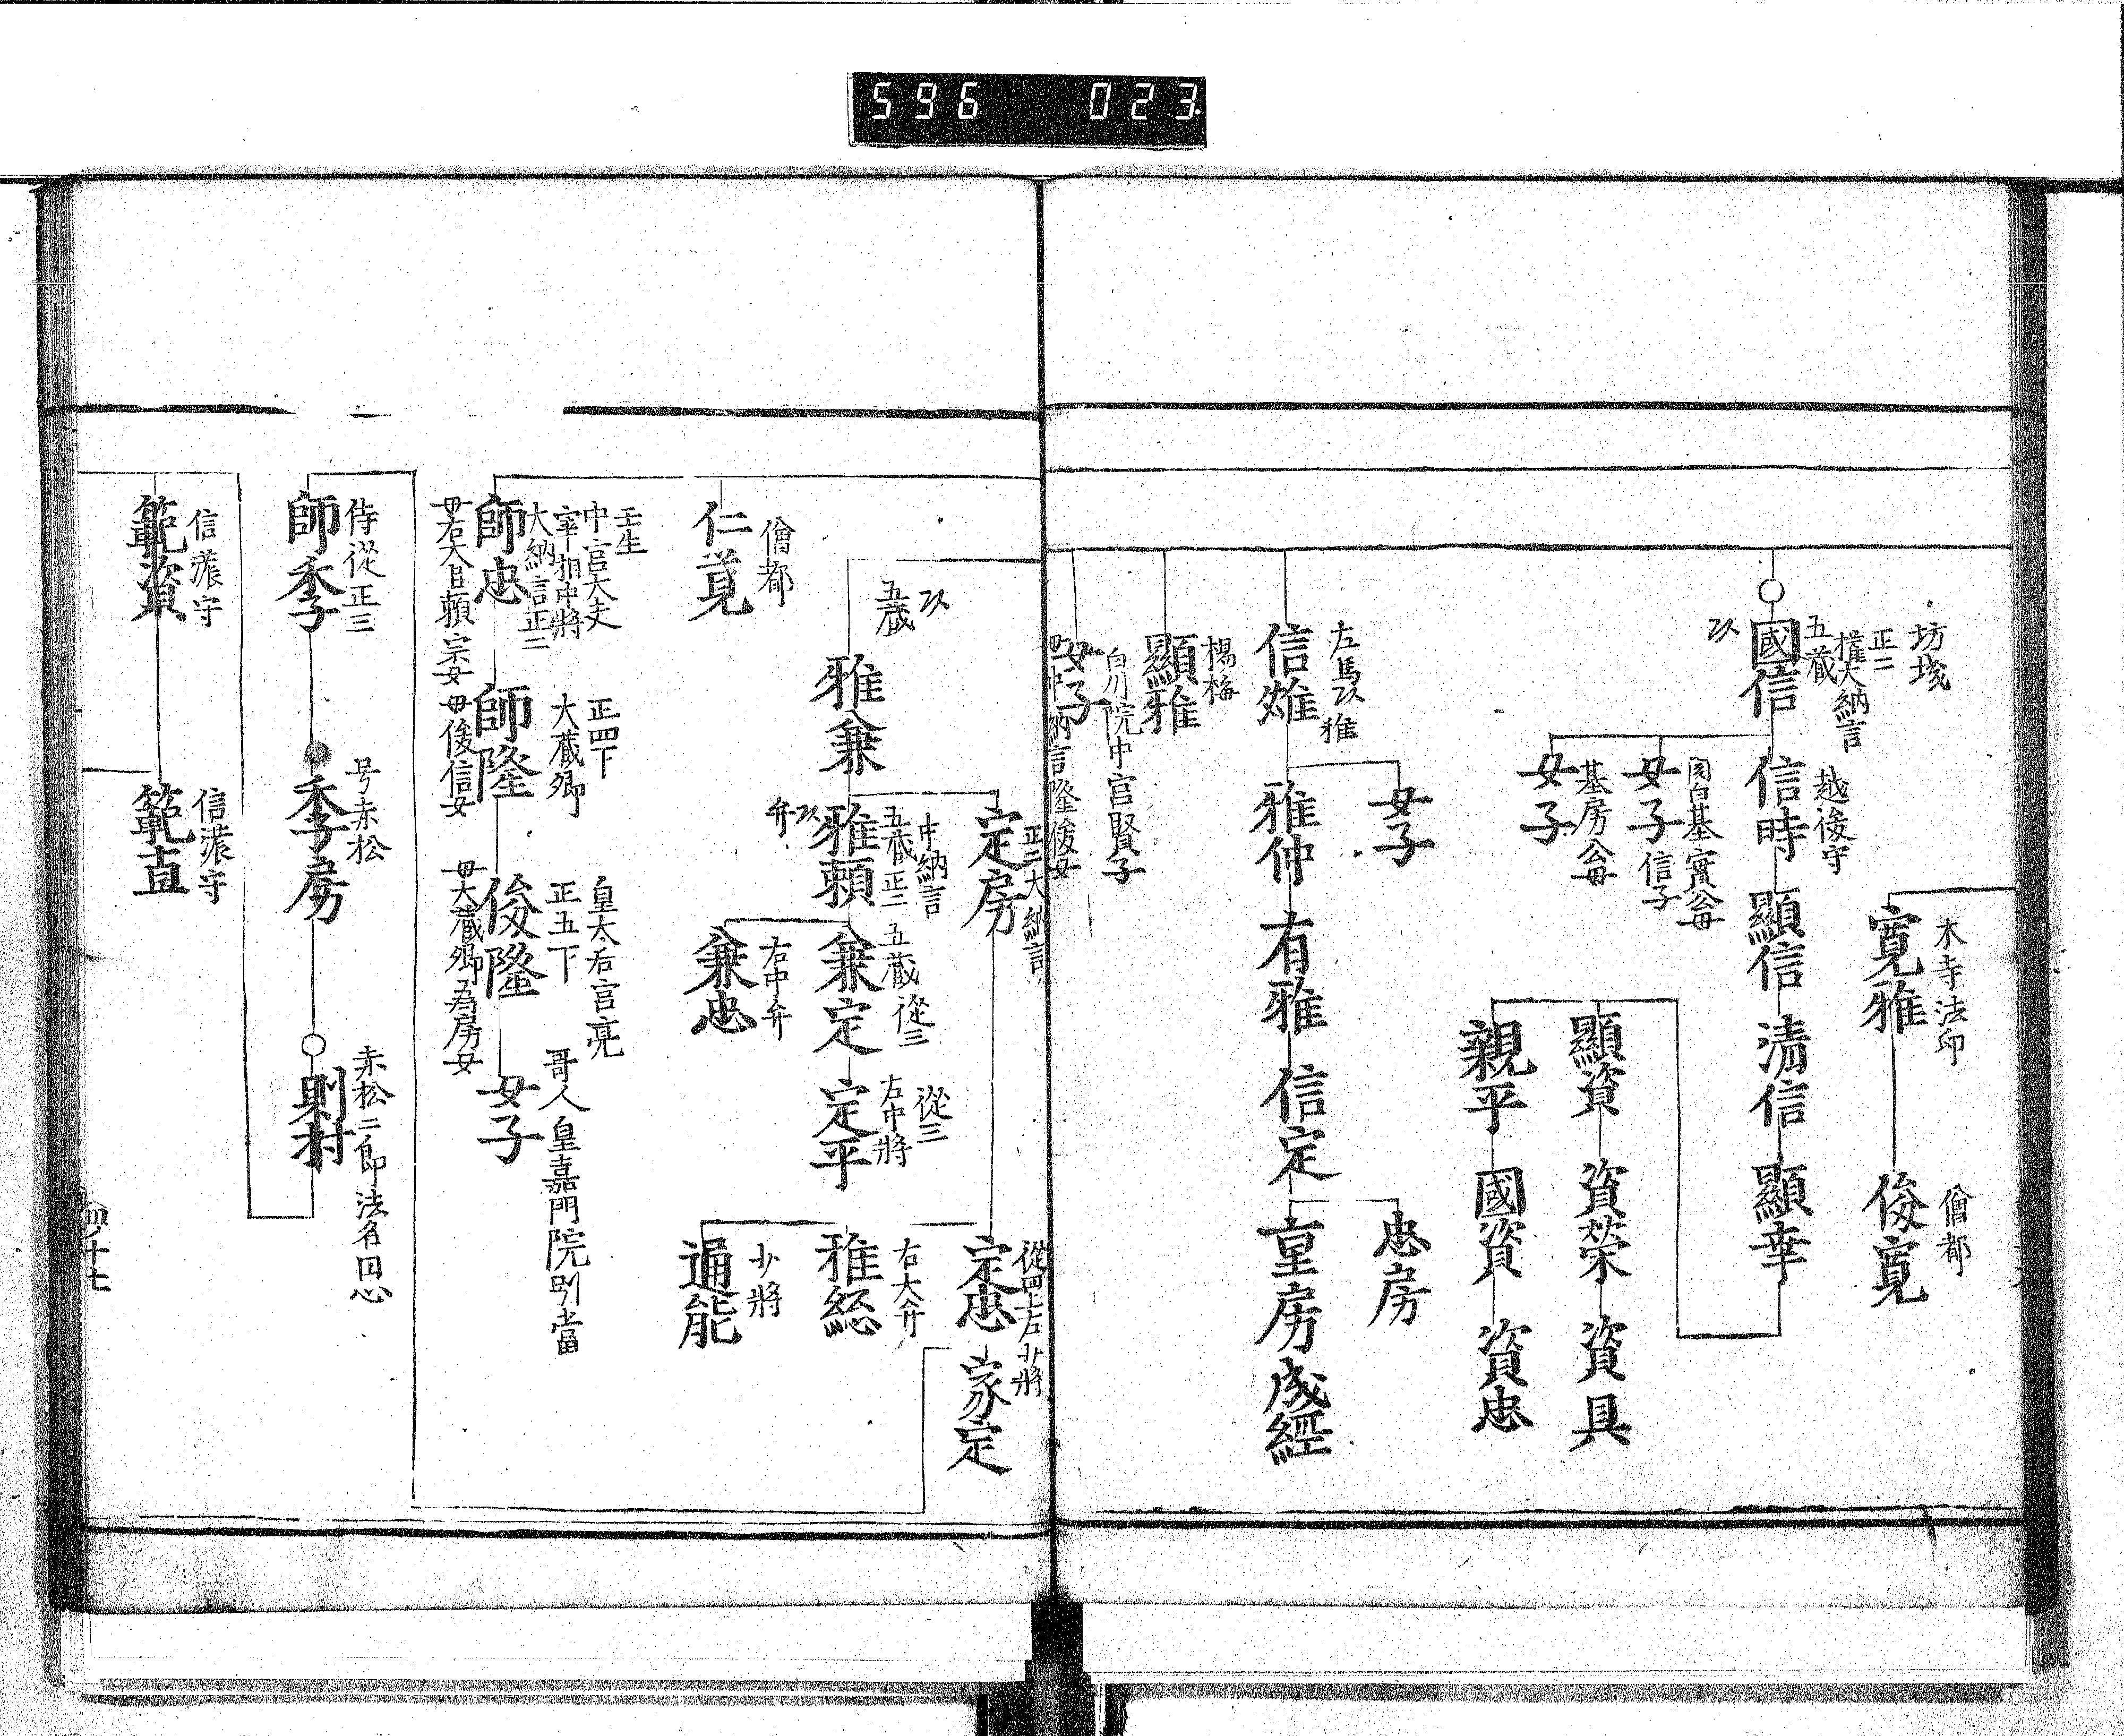 596 023
木寺法印
寛雅
僧都
俊寛
坊城
正二
權大納言
五蔵
國信
越後守
信時
顯信
清信
顯幸
関白基實公母
女子
信子
基房公母
女子
顯資
資榮
資具
親平
國資
資忠
左馬
信雅
女子
雅仲
有雅
信定
忠房
重房
成經
楊梅
顯雅
白川院中宮賢子
女子
母中納言隆俊女
正二大納言
定房
從四上左少將
定忠
家定
五蔵
雅兼
中納言
五蔵正二
雅頼
五蔵從三
兼定
從三
左中將
定平
右中弁
兼忠
右大弁
雅経
少將
通能
僧都
仁覚
壬生
中宮大夫
宰相中將
大納言正二
師忠
母右大臣頼宗女
正四下
大蔵卿
師隆
母俊信女
皇太后宮亮
正五下
俊隆
母大蔵卿為房女
哥人皇嘉門院別當
女子
侍從正三
師季
号赤松
季房
赤松二郎法名円心
則村
信濃守
範資
信濃守
範直
四ノ十七